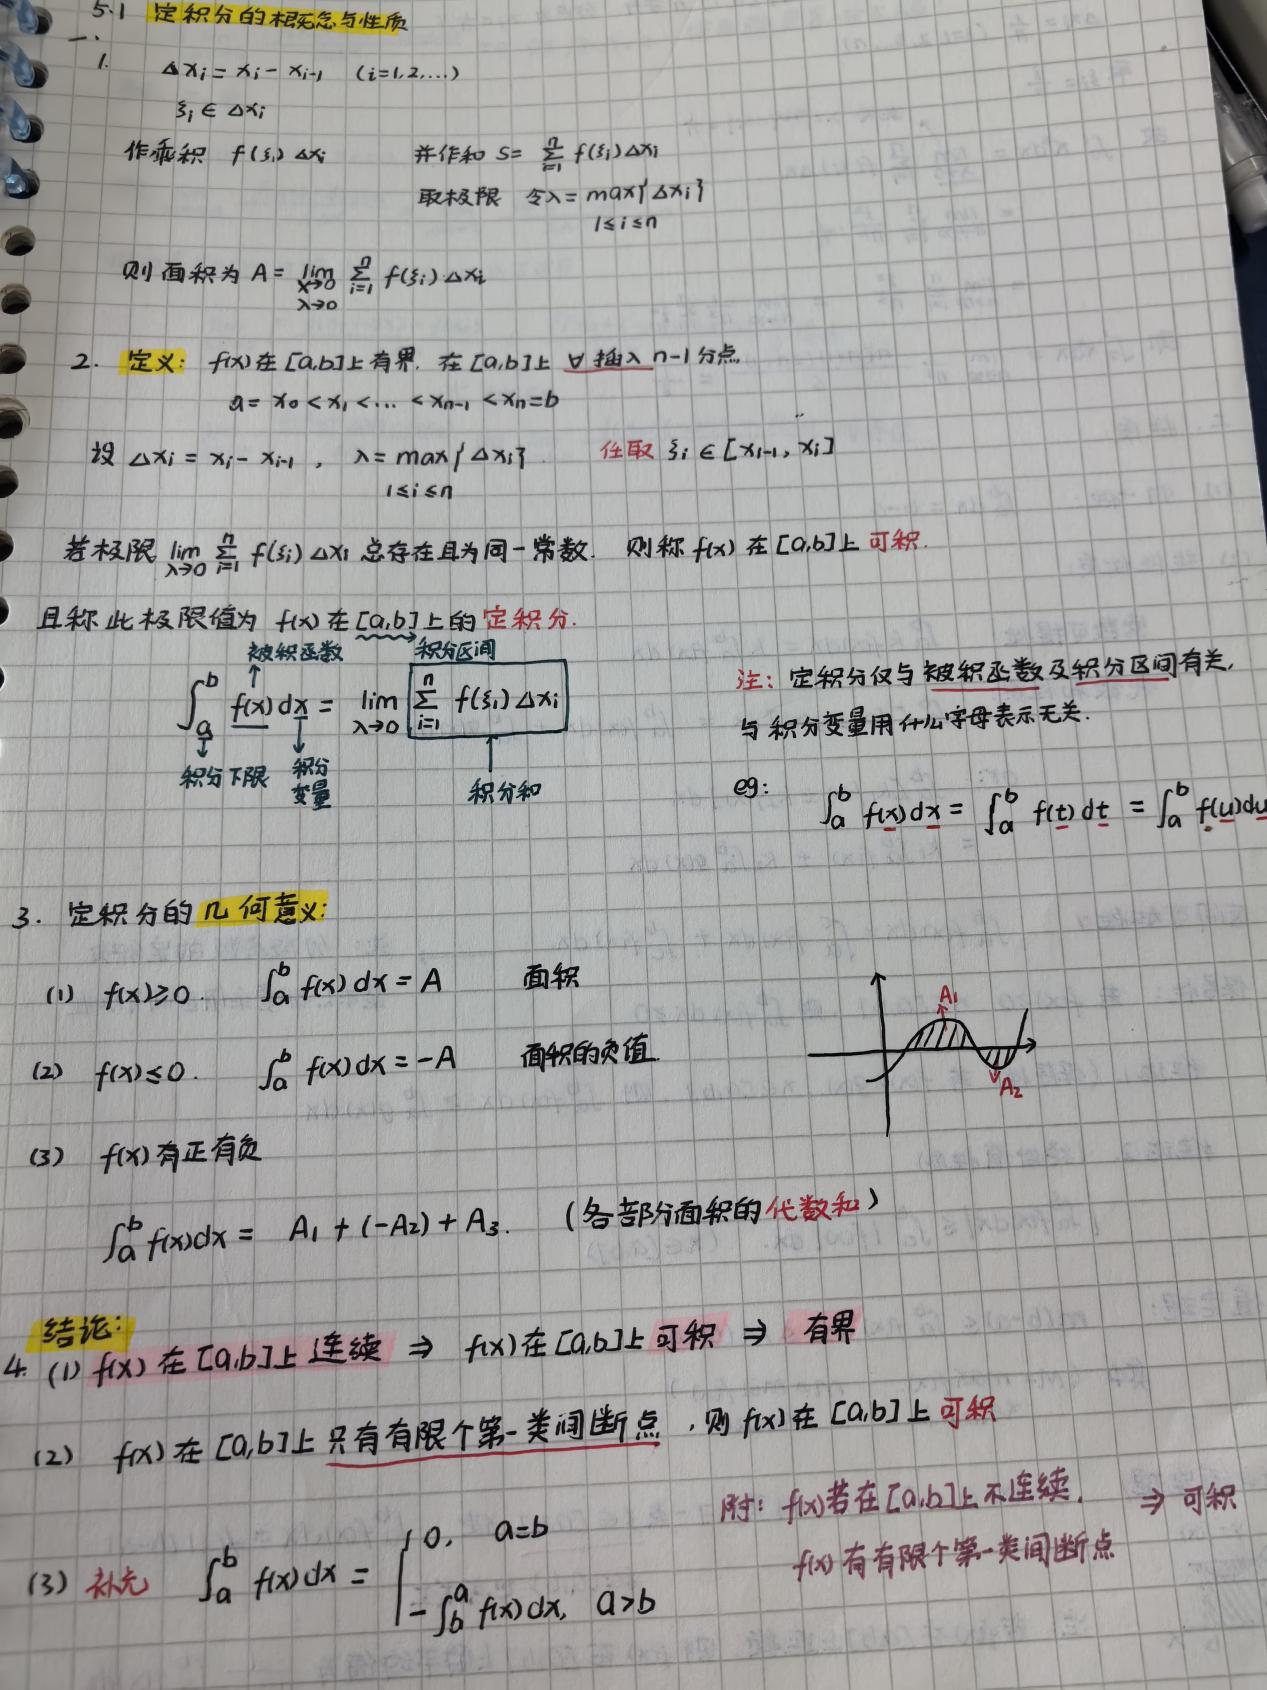 5.1 定积分的概念与性质
一.
1. Δxi = xi - xi-1 (i=1,2,...)
ξi ∈ Δxi
作乘积 f(ξi) Δxi 并作和 S= ∑(i=1→n) f(ξi)Δxi
取极限 令λ = max{Δxi}
1≤i≤n
则面积为 A = lim ∑(i=1→n) f(ξi)·Δxi
x→0
λ→0
2. 定义: f(x)在[a,b]上有界. 在[a,b]上 ∀ 插入 n-1 分点
a = x0 < x1 < ... < xn-1 < xn = b
设 Δxi = xi - xi-1 , λ = max{Δxi} 任取 ξi ∈ [xi-1, xi]
1≤i≤n
若极限 lim(λ→0) ∑(i=1→n) f(ξi) Δxi 总存在且为同一常数. 则称 f(x) 在[a,b]上 可积.
且称此极限值为 f(x)在[a,b]上的定积分.
被积函数 积分区间
∫(a→b) f(x)dx = lim(λ→0) ∑(i=1→n) f(ξi)Δxi
积分下限 积分变量 积分和
注: 定积分仅与被积函数及积分区间有关,
与积分变量用什么字母表示无关.
eg: ∫(a→b) f(x)dx = ∫(a→b) f(t)dt = ∫(a→b) f(u)du
3. 定积分的几何意义:
(1) f(x)≥0. ∫(a→b) f(x)dx = A 面积
(2) f(x)≤0. ∫(a→b) f(x)dx = -A 面积的负值.
A1
A2
(3) f(x)有正有负
∫(a→b) f(x)dx = A1 + (-A2) + A3. (各部分面积的代数和)
结论:
4. (1) f(x) 在[a,b]上 连续 ⇒ f(x)在[a,b]上可积 ⇒ 有界
(2) f(x)在[a,b]上只有有限个第一类间断点, 则 f(x)在[a,b]上可积
附: f(x)若在[a,b]上不连续. ⇒ 可积
f(x)有有限个第一类间断点
(3) 补充 ∫(a→b) f(x)dx = { 0, a=b
-∫(b→a) f(x)dx, a>b